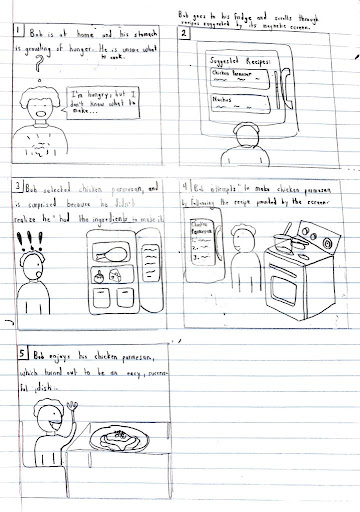 1
Bob is at home and his stomach
is growling of hunger. He is unsure what
to cook.
?
I'm hungry, but I
don't know what to
make...
Bob goes to his fridge and scrolls through
recipes suggested by its magnetic screen.
2
Suggested Recipes:
Chicken Parmesan
Nachos
3
Bob selected chicken parmesan, and
is surprised because he didn't
realize he had the ingredients to make it.
!!!
4
Bob attempts to make chicken parmesan
by following the recipe provided by the screen.
Chicken
Parmesan
1.
2.
3.
5
Bob enjoys his chicken parmesan,
which turned out to be an easy, success-
ful dish.